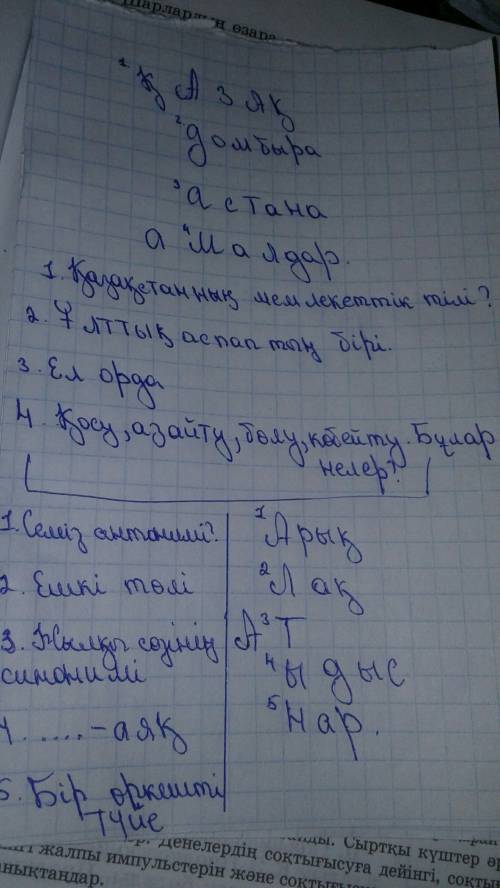 Шарлардың өзара
1 Қ А З А Қ
2 Домбыра
3 Астана
а 4 М а л д а р.
1. Қазақстанның мемлекеттік тілі?
2. Ұлттық аспаптың бірі.
3. Ел орда
4. Қосу, азайту, бөлу, көбейту. Бұлар
нелер?
1. Семіз антонимі?
2. Ешкі төлі
3. Жылқы сөзінің
синонимі
4 ......-аяқ
5. Бір өркешті
түйе
1 Арық
2 Лақ
А 3 Т
4 ыдыс
5 Нар.
Денелердің соқтығысуға дейінгі, соқты
жалпы импульстерін және соқтығыс
анықтаңдар.